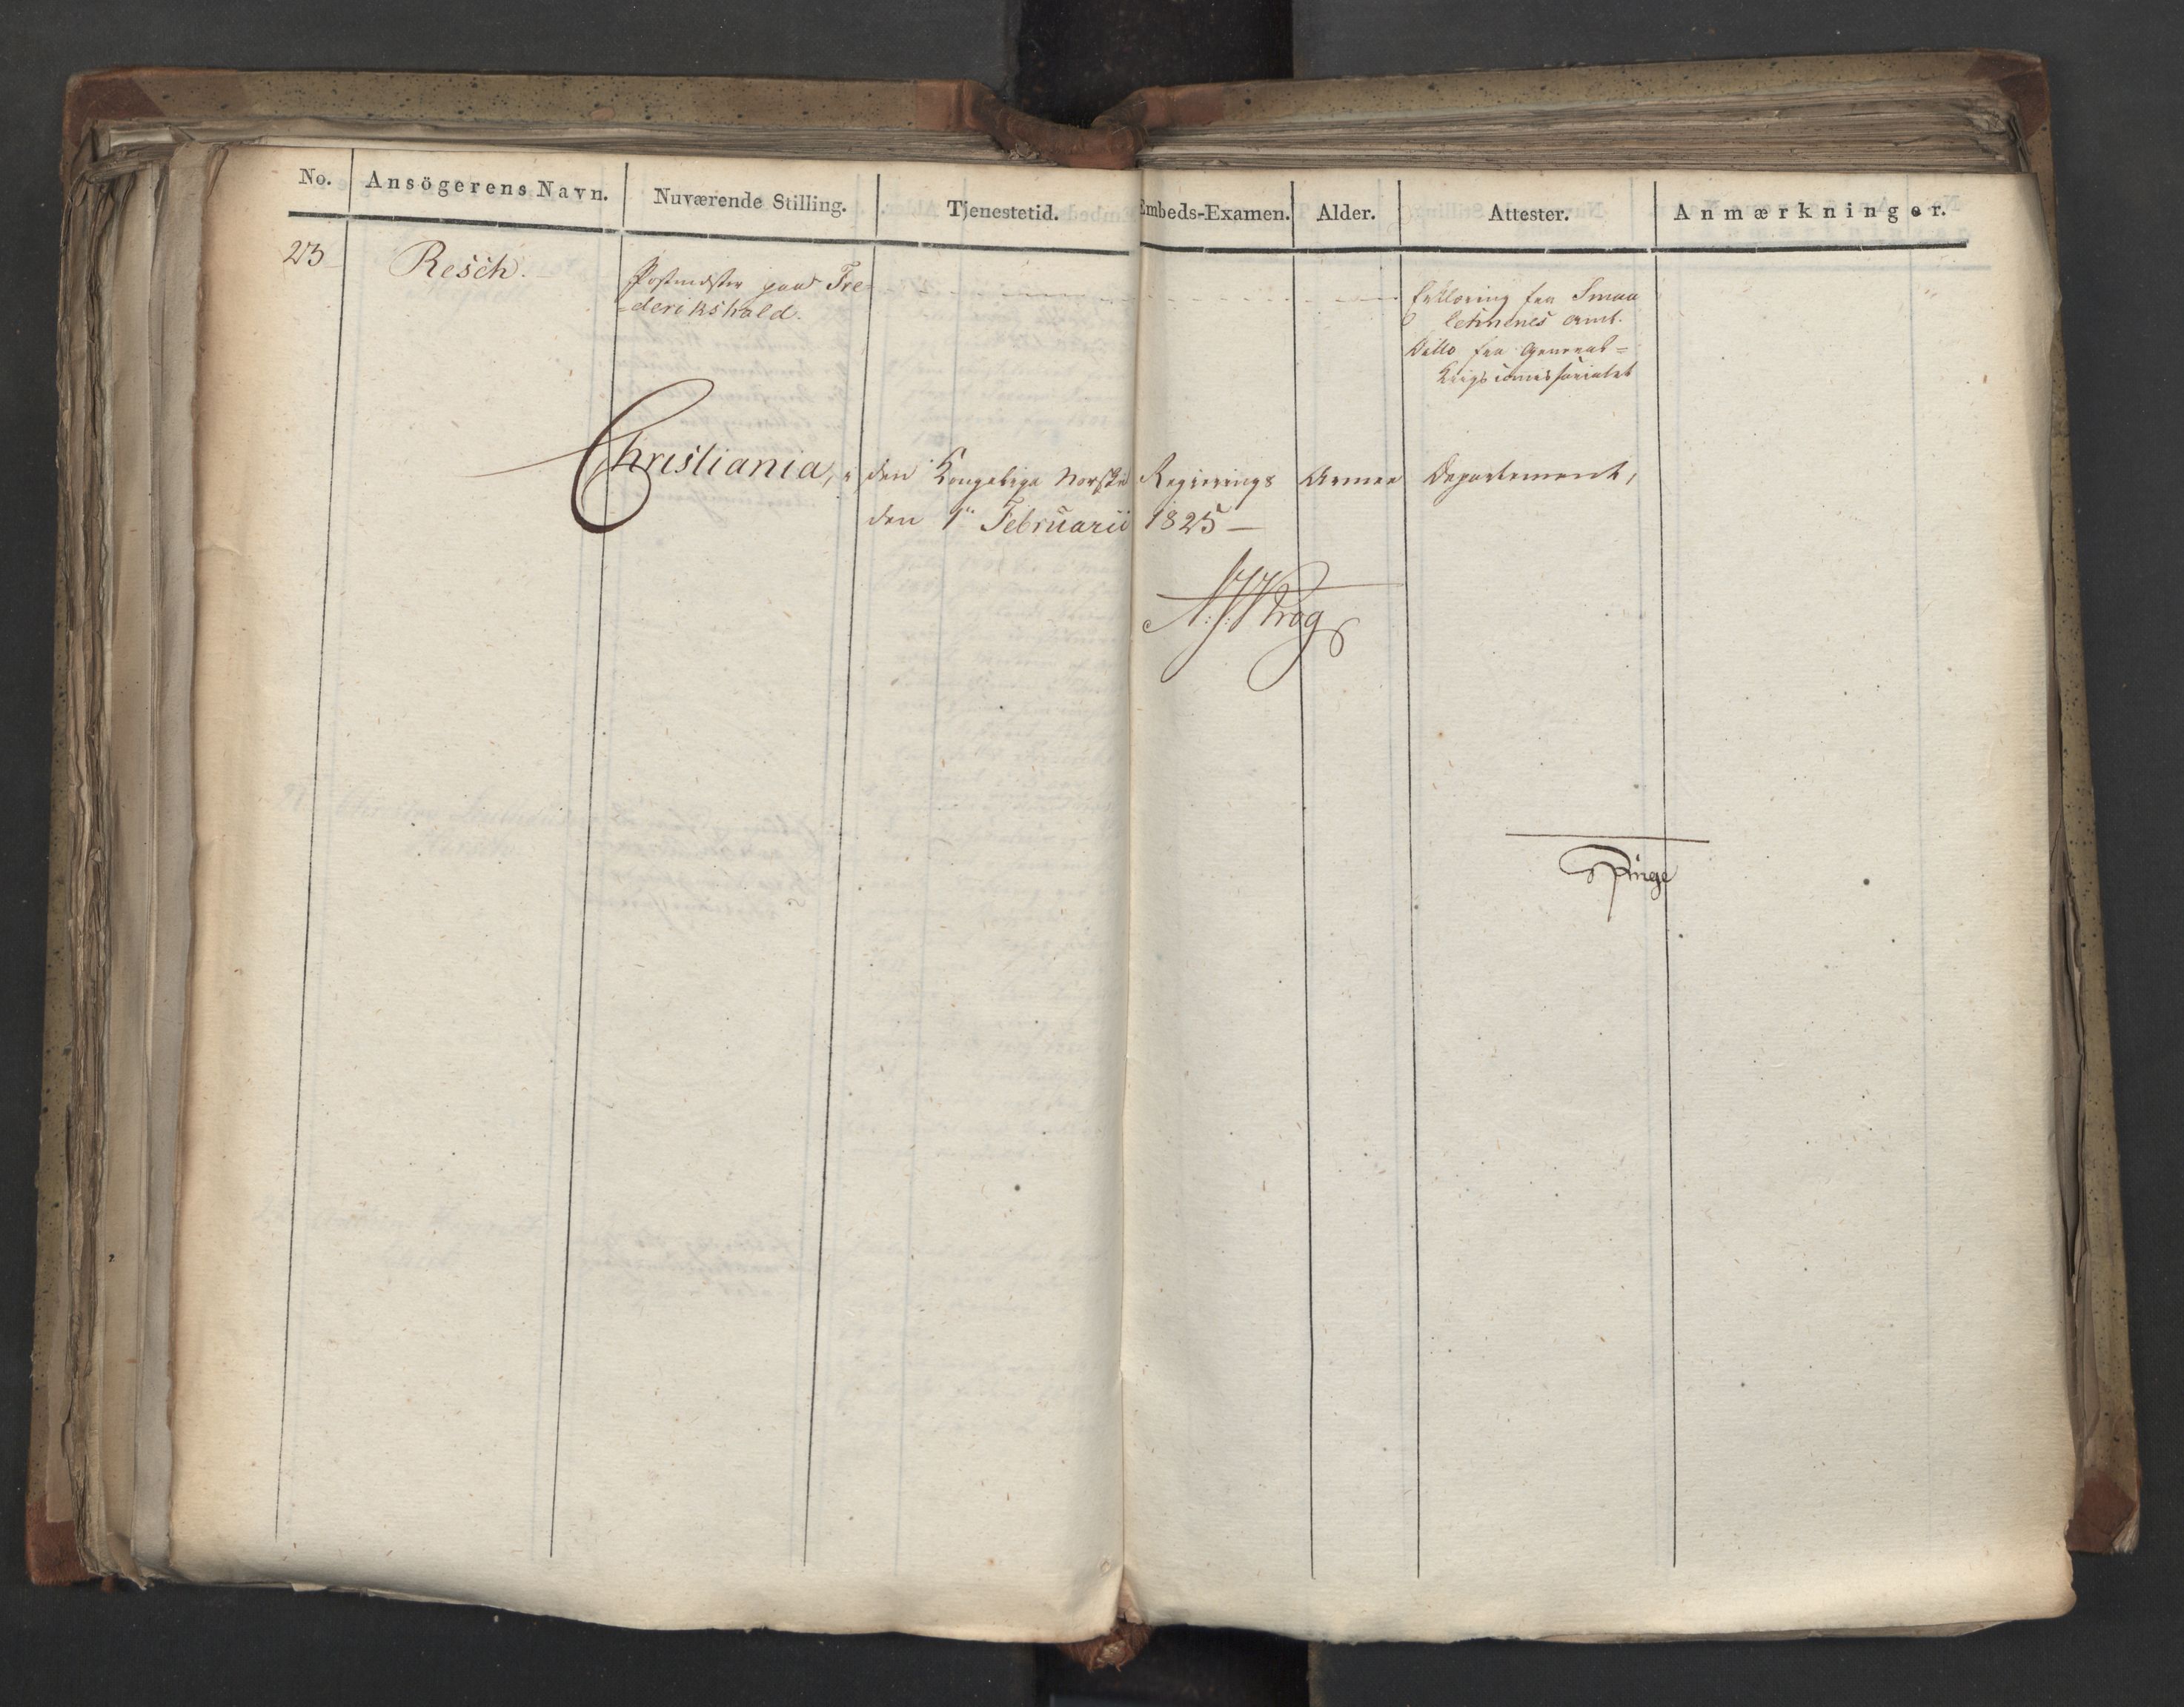 No. Ansögerens Navn. Nuværende Stilling. Tjenestetid. Embeds-Examen. Alder. Attester. Anmærkninger.
23 Resch. Postmester paa Fre
=derikshald.
Erklæring fra Smaa
lehnenes Amt.
Ditto fra General=
Krigscommissariatet
Christiania, i den Kongelige Norske Regjerings Armee Departement,
den 1ste Februarii 1825 —
Krog